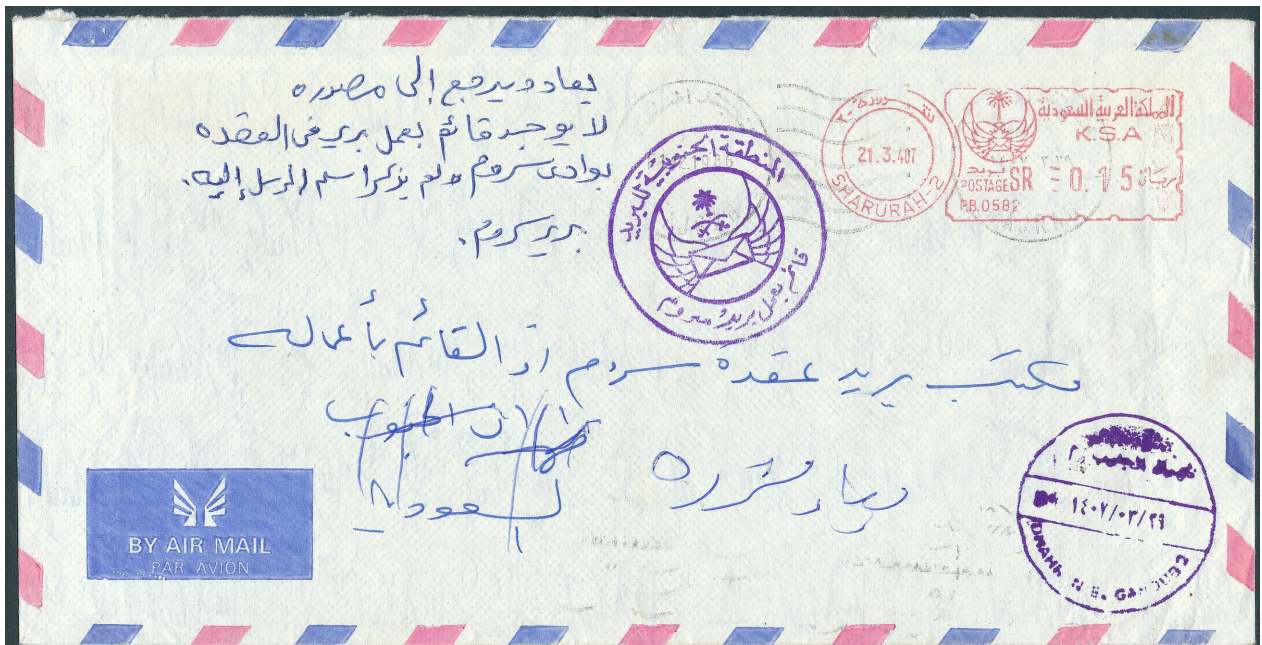 يعاد ويرجع إلى مصدره
لا يوجد قائم بعمل بريد في العقده
بوادي سروم ولم يذكر اسم المرسل إليه.
بريد سروم.
المنطقة الجنوبية للبريد
قائم بعمل بريد سروم
شرورة-٢
21.3.407
SHARURAH-2
المملكة العربية السعودية
K.S.A
بريد
POSTAGE SR 0.15 ريال
P.B.0582
مكتب بريد عقدة سروم او القائم بأعماله
الجنوب
السعودية
ظهران الجنوب
١٤٠٧/٠٣/٢٩
BY AIR MAIL
PAR AVION